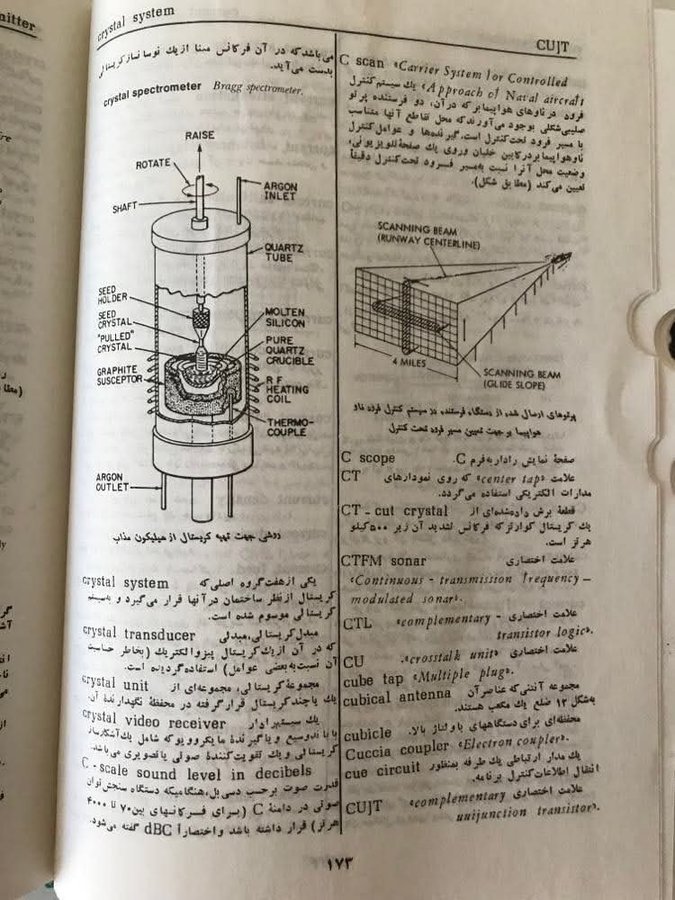 mitter
crystal system
CUJT
می‌باشدکه در آن فرکانس مبنا از یك نوسانسازکریستالی
بدست می‌آید.
crystal spectrometer Bragg spectrometer.
RAISE
ROTATE
SHAFT
ARGON
INLET
QUARTZ
TUBE
SEED
HOLDER
SEED
CRYSTAL
"PULLED"
CRYSTAL
GRAPHITE
SUSCEPTOR
MOLTEN
SILICON
PURE
QUARTZ
CRUCIBLE
R F
HEATING
COIL
THERMO-
COUPLE
ARGON
OUTLET
روشی جهت تهیه کریستال از سیلیکون مذاب
crystal system یکی از هفت گروه اصلی که
کریستال از نظر ساختمان در آنها قرار می‌گیرد و به سیستم
کریستالی موسوم شده است.
crystal transducer مبدل کریستالی، مبدلی
که در آن از یك کریستال پیزوالکتریك (بخاطر حساسیت
آن نسبت به بعضی عوامل) استفاده گردیده است.
crystal unit مجموعهٔ کریستالی، مجموعه‌ای از
یك یا چند کریستال قرار گرفته در محفظهٔ نگهدارندهٔ آن.
crystal video receiver یك سیستم رادار
با باند وسیع و یا گیرندهٔ مایکروویو که شامل یك آشکارساز
کریستالی و یك تقویت کنندهٔ صوتی یا تصویری می‌باشد.
C - scale sound level in decibels
قدرت صوت برحسب دسی‌بل، هنگامیکه دستگاه سنجش توان
صوتی در دامنهٔ C (برای فرکانسهای بین ۷۰ تا ۴۰۰۰
هرتز) قرار داشته باشد و اختصاراً dBC گفته می‌شود.
C scan «Carrier System for Controlled
Approach of Naval aircraft» یك سیستم کنترل
فرود در ناوهای هواپیمابر که در آن، دو فرستنده پرتو
صلیبی شکلی بوجود می‌آورند که محل تقاطع آنها متناسب
با مسیر فرود تحت کنترل است. گیرنده‌ها و عوامل کنترل
ناو هواپیمابر در کابین خلبان و روی یك صفحهٔ تلویزیونی،
وضعیت محل آنرا نسبت به مسیر فرود تحت کنترل دقیقاً
تعیین می‌کند (مطابق شکل).
SCANNING BEAM
(RUNWAY CENTERLINE)
4 MILES
SCANNING BEAM
(GLIDE SLOPE)
پرتوهای ارسال شده از دستگاه فرستنده در سیستم کنترل فرود ناو
هواپیما بر جهت تعیین مسیر فرود تحت کنترل
C scope صفحهٔ نمایش رادار به فرم C.
CT علامت «center tap» که روی نمودارهای
مدارات الکتریکی استفاده می‌گردد.
CT - cut crystal قطعهٔ برش داده‌شده‌ای از
یك کریستال کوارتز که فرکانس تشدید آن زیر ۵۰۰ کیلو
هرتز است.
CTFM sonar علامت اختصاری
«Continuous - transmission frequency –
modulated sonar».
CTL علامت اختصاری «complementary -
transistor logic».
CU علامت اختصاری «crosstalk unit».
cube tap «Multiple plug».
cubical antenna مجموعه آنتنی که عناصر آن
به‌شکل ۱۲ ضلع یك مکعب هستند.
cubicle محفظه‌ای برای دستگاههای با ولتاژ بالا.
Cuccia coupler «Electron coupler».
cue circuit یك مدار ارتباطی یك طرفه بمنظور
انتقال اطلاعات کنترل برنامه.
CUJT علامت اختصاری «complementary
unijunction transistor».
۱۷۳